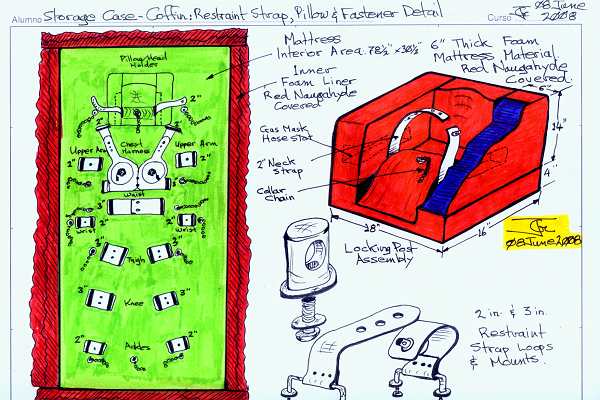 Alumno Storage Case - Coffin: Restraint Strap, Pillow & Fastener Detail Curso 08 June 2008
Mattress
Interior Area. 78½" x 30½"
6" Thick Foam
Mattress Material
Red Naugahyde
Covered.
Inner
Foam Liner
Red Naugahyde
Covered
Pillow/Head
Holder
2" 2"
2" 2"
Upper Arm Chest Harness Upper Arm
2" 2"
Waist
3"
2" 2"
Wrist Wrist
3" Thigh 3"
3" Knee 3"
2" Ankles 2"
Gas Mask
Hose Slot
2" Neck
Strap
Collar
Chain
6"
14"
4"
18" 16"
08 June 2008
Locking Post
Assembly
2 in. & 3 in.
Restraint
Strap Loops
& Mounts.